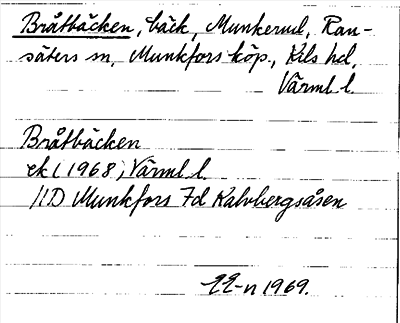 Bråtbäcken, bäck, Munkerud, Ran-
säters sn, Munkfors köp., Kils hd,
Värml. l.
Bråtbäcken
ek (1968) Värml. l.
11D Munkfors 7d Kalvbergsåsen
1969.